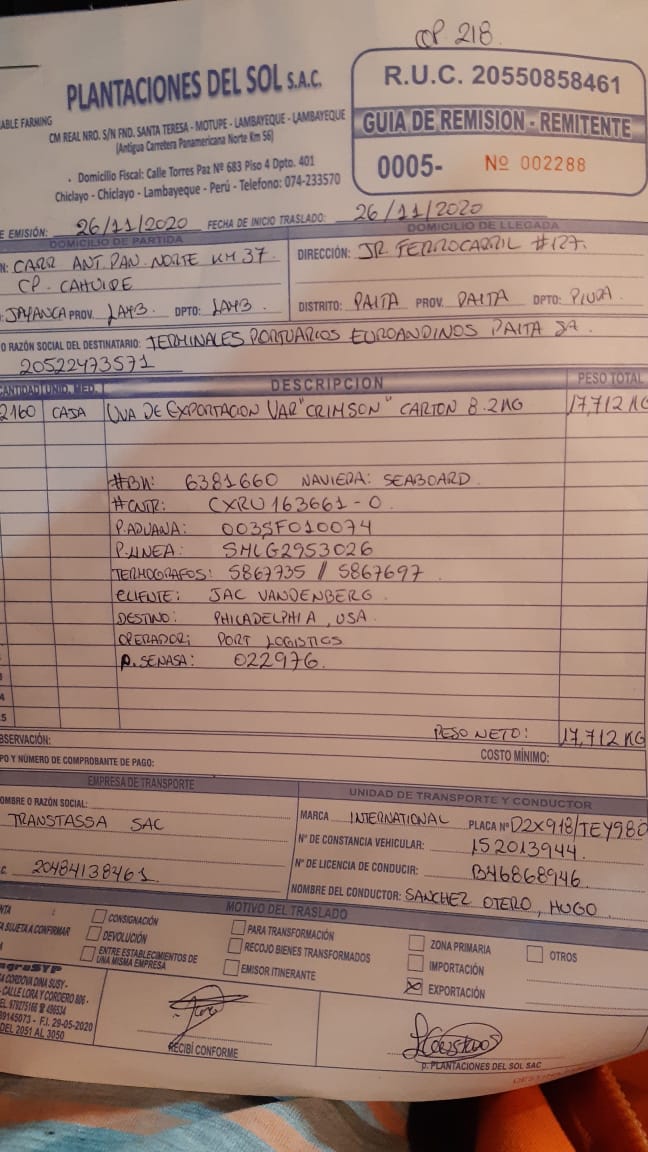 CP 218
PLANTACIONES DEL SOL S.A.C.
ABLE FARMING
CM REAL NRO. S/N FND. SANTA TERESA - MOTUPE - LAMBAYEQUE - LAMBAYEQUE
(Antigua Carretera Panamericana Norte Km 56)
. Domicilio Fiscal: Calle Torres Paz Nº 683 Piso 4 Dpto. 401
Chiclayo - Chiclayo - Lambayeque - Perú - Telefono: 074-233570
R.U.C. 20550858461
GUIA DE REMISION - REMITENTE
0005- Nº 002288
E EMISIÓN: 26/11/2020 FECHA DE INICIO TRASLADO: 26/11/2020
DOMICILIO DE PARTIDA
N: CARR ANT. PAN. NORTE KM 37
CP. CAHUIDE
: JAYANCA PROV. LAMB. DPTO: LAMB.
DOMICILIO DE LLEGADA
DIRECCIÓN: JR FERROCARRIL #127.
DISTRITO: PAITA PROV. PAITA DPTO: PIURA.
O RAZÓN SOCIAL DEL DESTINATARIO: TERMINALES PORTUARIOS EUROANDINOS PAITA SA.
20522473571
CANTIDAD UNID. MED. DESCRIPCION PESO TOTAL
2160 CAJA UVA DE EXPORTACION VAR "CRIMSON" CARTON 8.2KG 17,712 KG
#BK: 6381660 NAVIERA: SEABOARD
#CNTR: CXRU 163661-0
P.ADUANA: 003SF010074
P.LINEA: SMLG2953026
TERMOGRAFOS: 5867735 // 5867697
CLIENTE: JAC VANDENBERG.
DESTINO: PHILADELPHIA, USA.
OPERADOR: PORT LOGISTICS
P. SENASA: 022976.
4
5
PESO NETO: 17,712 KG
BSERVACIÓN:
COSTO MÍNIMO:
PO Y NÚMERO DE COMPROBANTE DE PAGO:
EMPRESA DE TRANSPORTE
OMBRE O RAZÓN SOCIAL:
TRANSTASSA SAC
C. 20484138461
UNIDAD DE TRANSPORTE Y CONDUCTOR
MARCA INTERNATIONAL PLACA Nº D2X918/TEY980
N° DE CONSTANCIA VEHICULAR: 152013944.
N° DE LICENCIA DE CONDUCIR: B46868946.
NOMBRE DEL CONDUCTOR: SANCHEZ OTERO, HUGO.
MOTIVO DEL TRASLADO
NTA :
A SUJETA A CONFIRMAR
A
CONSIGNACIÓN
DEVOLUCIÓN
ENTRE ESTABLECIMIENTOS DE
UNA MISMA EMPRESA
PARA TRANSFORMACIÓN
RECOJO BIENES TRANSFORMADOS
EMISOR ITINERANTE
ZONA PRIMARIA
IMPORTACIÓN
EXPORTACIÓN
OTROS
A CORDOVA DINA SUSY-
- CALLE LORA Y CORDERO 806 -
39145073 - F.I. 29-05-2020
DEL 2051 AL 3050
RECIBÍ CONFORME
p. PLANTACIONES DEL SOL SAC